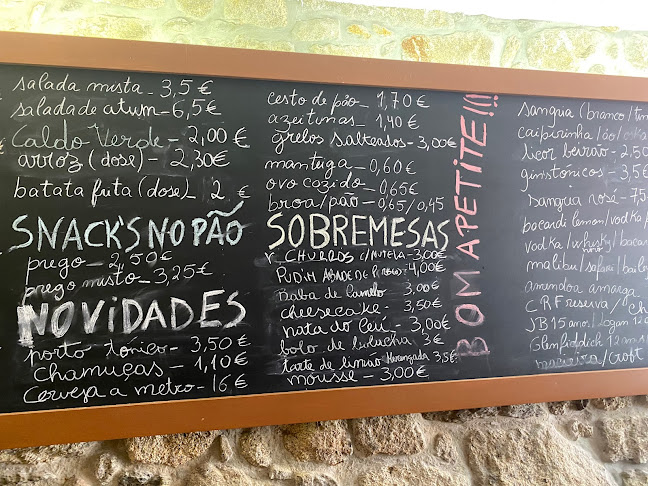 salada mista - 3,5 €
salada de atum - 6,5 €
Caldo Verde - 2,00 €
arroz (dose) - 2,30€
batata frita (dose) 2 €
SNACK'S NO PÃO
prego - 2,50€
prego misto - 3,25 €
NOVIDADES
porto tónico - 3,50 €
chamuças - 1,10 €
Cerveja a metro - 16 €
cesto de pão - 1,70 €
azeitonas - 1,40 €
grelos salteados - 3,00€
manteiga - 0,60 €
ovo cozido - 0,65€
broa/pão - 0,65/0,45
SOBREMESAS
CHURROS c/NUTELA - 3,00€
PUDIM ABADE DE PRISCOS - 4,00€
Baba de Camelo 3,00€
cheesecake - 3,50€
nata do Céu - 3,00€
bolo de bolacha 3€
tarte de limão Merengada 3,5€
mousse - 3,00€
BOM APETITE!!!
sangria (branco/tin
caipirinha/ão/oska
licor beirão - 2,50
gins tonicos - 3,5€
sangria rosé - 7,5
bacardi lemon/vodka
vodka/whisky novo/bacar
malibu/safari/bailey
amendoa amarga
CR Reserva/
JB 15 ano/Logan 12 a
Glenfiddich 12 an
/croft